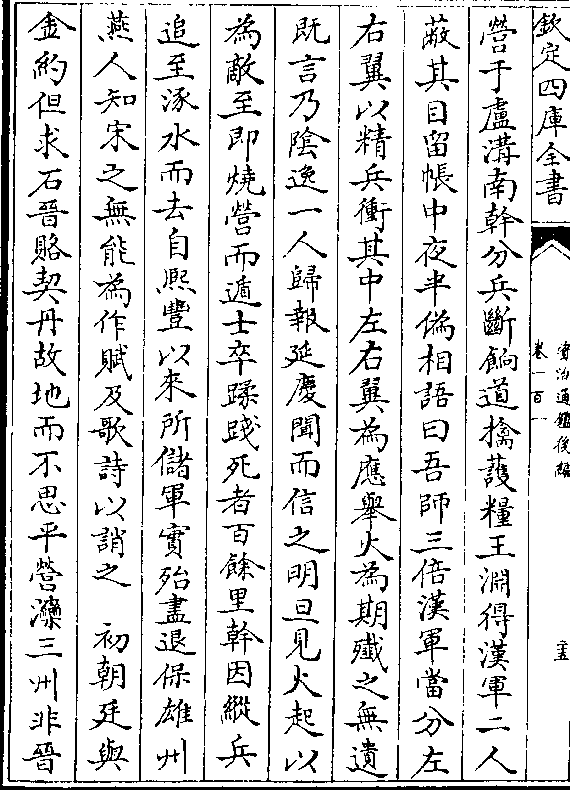 欽定四庫全書
資治通鑑後編
卷一百一
十五
營于盧溝南幹分兵斷餉道擒護糧王淵得漢軍二人
蔽其目留帳中夜半僞相語曰吾師三倍漢軍當分左
右翼以精兵衝其中左右翼為應舉火為期殲之無遺
既言乃陰逸一人歸報延慶聞而信之明旦見火起以
為敵至即燒營而遁士卒蹂踐死者百餘里幹因縱兵
追至涿水而去自熙豐以來所儲軍實殆盡退保雄州
燕人知宋之無能為作賦及歌詩以誚之　初朝廷與
金約但求石晉賂契丹故地而不思平營灤三州非晉